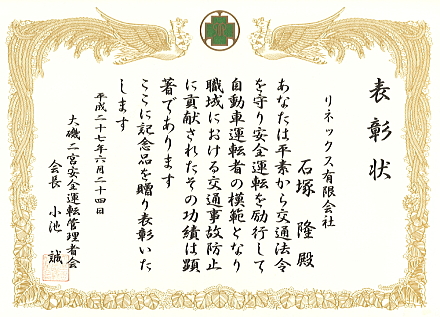 表彰状
リネックス有限会社
石塚 隆 殿
あなたは平素から交通法令
を守り安全運転を励行して
自動車運転者の模範となり
職域における交通事故防止
に貢献されたその功績は顕
著であります
ここに記念品を贈り表彰いた
します
平成二十七年六月二十四日
大磯二宮安全運転管理者会
会長 小池 誠